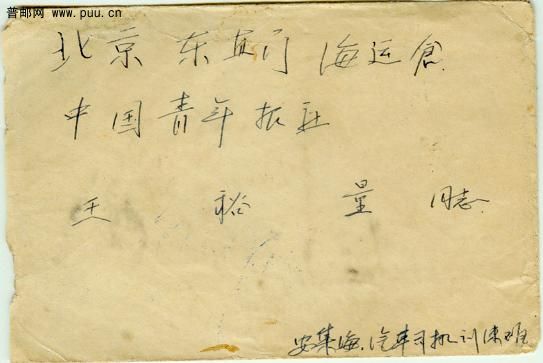 普邮网 www.puu.cn
北京 东直门 海运仓
中国青年报社
王 裕 量 同志
安集海 汽车司机训练班